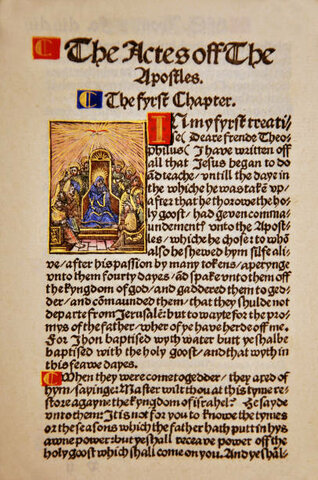 The Actes off The
Apostles.
The fyrst Chapter.
IN my fyrst treati/
se (Deare frende Theo/
philus) I have written off
all that Jesus began to do
ād teache / untill the daye in
the which he was takē vp /
after that he thorowe the ho/
ly goost / had geven comma/
undementˢ unto the Apost/
les / which he chose: to whō
also he shewed hym silfe ali/
ve / after his passion by many tokens / aperynge
unto them fourty dayes / ād spake unto them off
the kyngdom of god / and gaddered them to ged/
der / and cōmaunded them / that they shulde not
departe from Jerusalē: but to wayte for the pro/
mys of the father / wher of ye have herde off me.
For Jhon baptised wyth water but ye shalbe
baptised with the holy goost / and that wyth in
this feawe dayes.
When they were come togedder / they axed of
hym / sayinge: Master wilt thou at this tyme re/
store agayne the kyngdom of israhel? He sayde
unto them: It is not for you to knowe the tymes
or the seasons which the father hath put in hys
awne power: but ye shall receave power off the
holy goost which shall come on you. And ye shal/